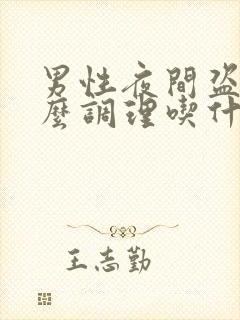 男性夜間盜
麼調理喫什
王志勤